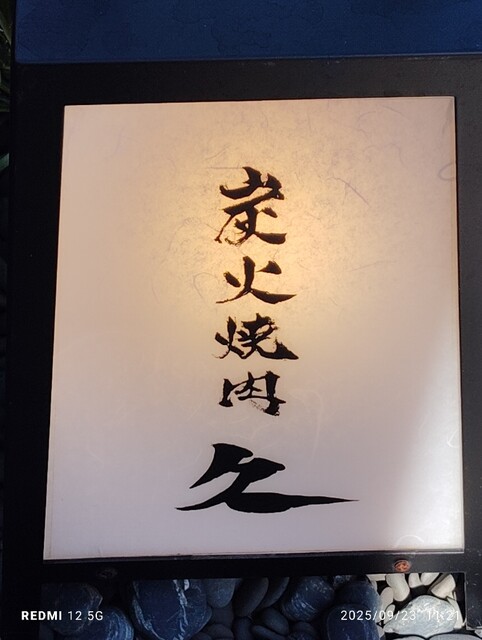 炭火焼肉
久
REDMI 12 5G
2025/09/23 11:21